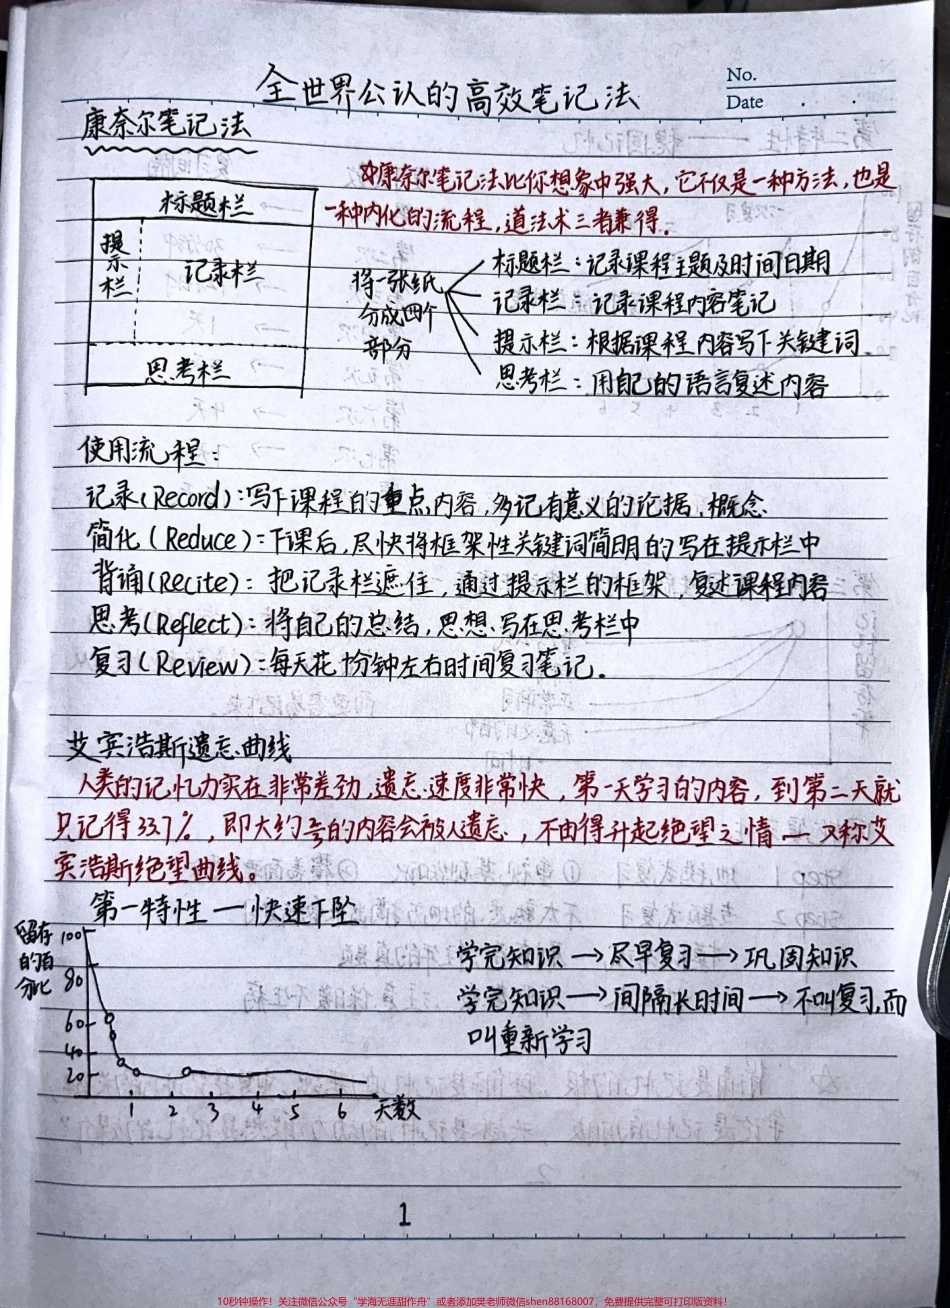 全世界公认的高效笔记法
No.
Date
康奈尔笔记法
☆康奈尔笔记法比你想象中强大,它不仅是一种方法,也是
一种内化的流程,道法术三者兼得。
标题栏
提示栏
记录栏
思考栏
将一张纸
分成四个
部分
标题栏:记录课程主题及时间日期
记录栏:记录课程内容笔记
提示栏:根据课程内容写下关键词.
思考栏:用自己的语言复述内容
使用流程:
记录(Record):写下课程的重点内容,多记有意义的论据、概念
简化(Reduce):下课后,尽快将框架性关键词简明的写在提示栏中
背诵(Recite):把记录栏遮住,通过提示栏的框架,复述课程内容
思考(Reflect):将自己的总结,思想写在思考栏中
复习(Review):每天花十分钟左右时间复习笔记.
艾宾浩斯遗忘曲线
人类的记忆力实在非常差劲,遗忘速度非常快,第一天学习的内容,到第二天就
只记得33.7%,即大约⅔的内容会被人遗忘,不由得升起绝望之情—又称艾
宾浩斯绝望曲线。
第一特性—快速下坠
留存
的百
分比
100
80
60
40
20
1 2 3 4 5 6 天数
学完知识→尽早复习→巩固知识
学完知识→间隔长时间→不叫复习,而
叫重新学习
1
10秒钟操作!关注微信公众号“学海无涯甜作舟”或者添加樊老师微信shen88168007,免费提供完整可打印版资料!